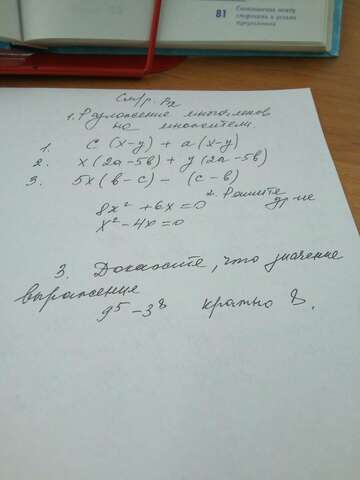 81
Соотношение между
сторонами и углами
треугольника
См/р.
1. Разложение многочленов
на множители.
1. c (x-y) + a (x-y)
2. x (2a-5b) + y (2a-5b)
3. 5x (b-c) - (c-b)
2. Решите
ур-ие
8x² + 6x = 0
x² - 4x = 0
3. Докажите, что значение
выражения
9⁵ - 3⁸ кратно 8.